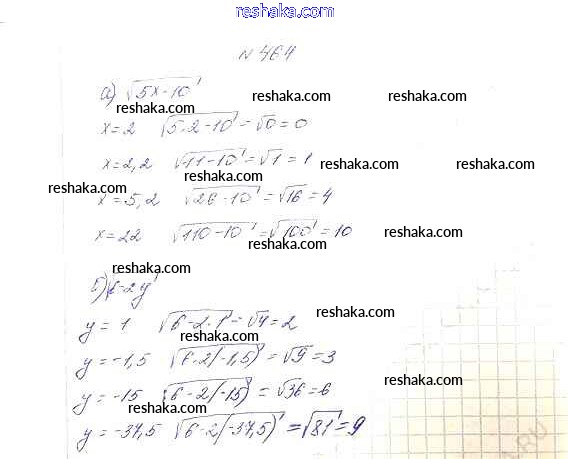 reshaka.com
№ 464
а) √5x-10
reshaka.com reshaka.com reshaka.com
x=2 √5·2-10 = √0 = 0
x=2,2 √11-10 = √1 = 1 reshaka.com reshaka.com
reshaka.com reshaka.com
x=5,2 √26-10 = √16 = 4
x=22 √110-10 = √100 = 10 reshaka.com
reshaka.com
reshaka.com
б) √6-2y
y = 1 √6-2·1 = √4 = 2 reshaka.com
reshaka.com
y = -1,5 √6-2(-1,5) = √9 = 3
reshaka.com
y = -15 √6-2(-15) = √36 = 6
reshaka.com
y = -37,5 √6-2(-37,5) = √81 = 9